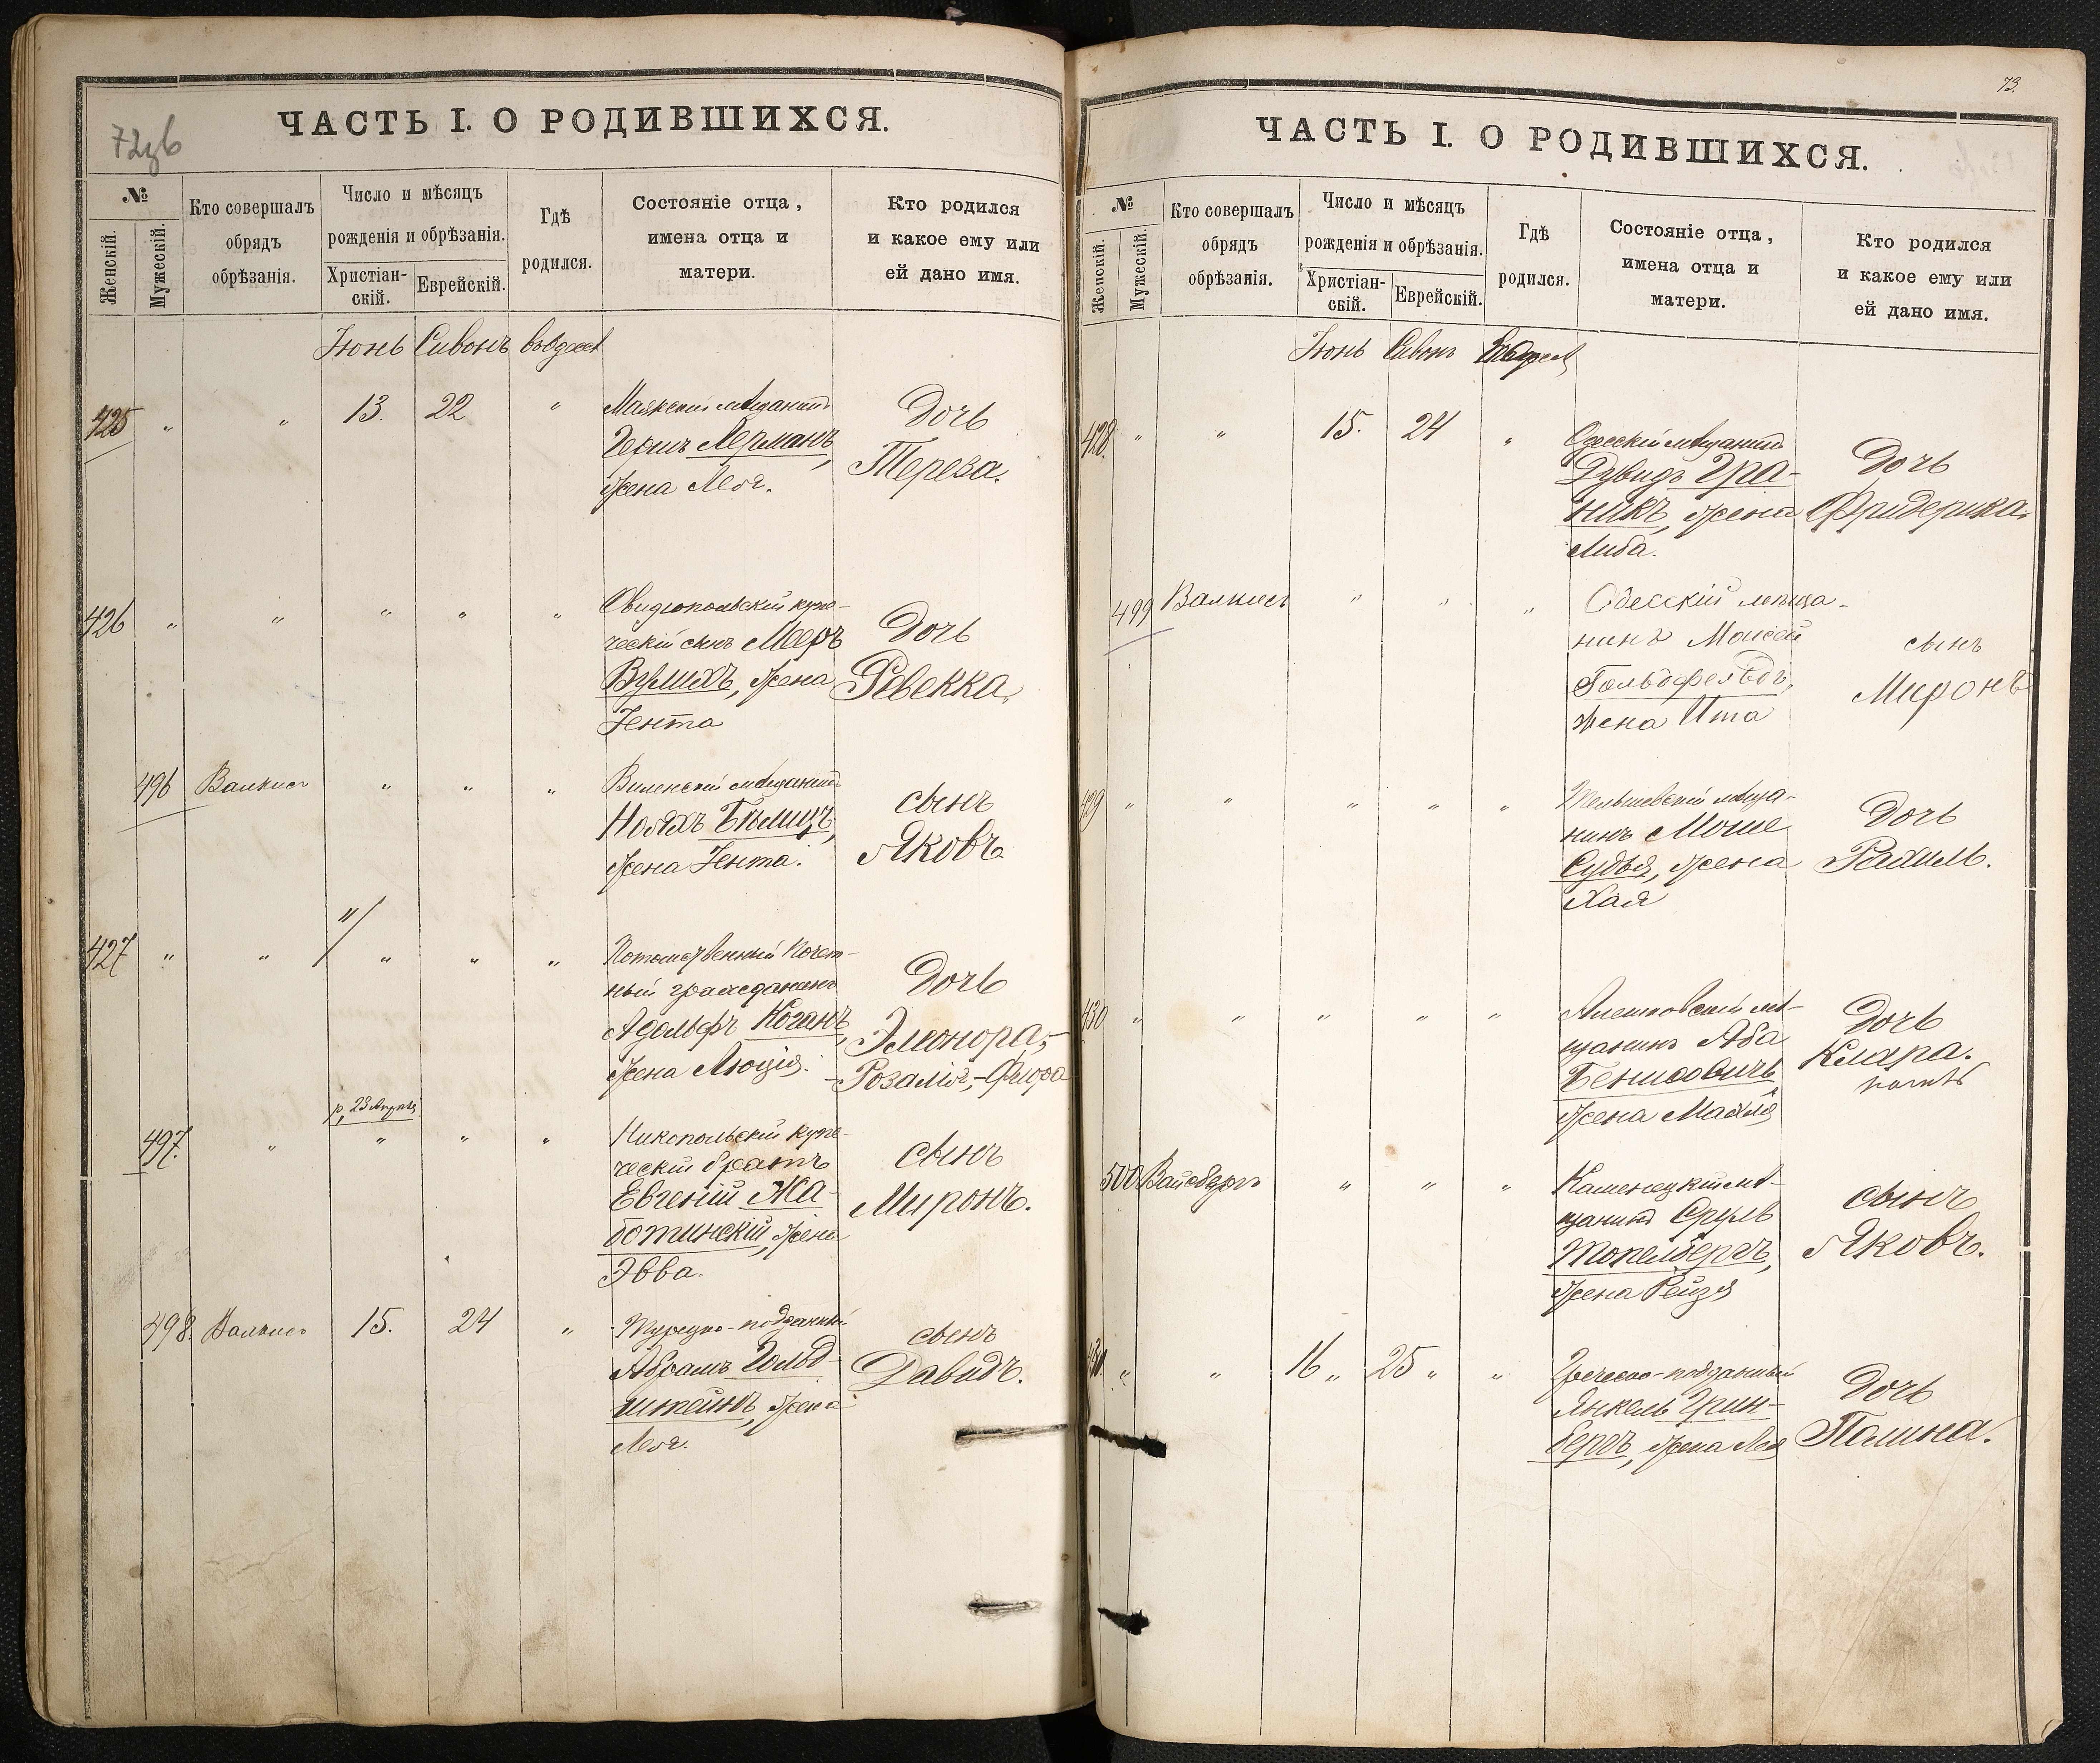 72зв
ЧАСТЬ I. О РОДИВШИХСЯ.
№
Женскій.
Мужескій.
Кто совершалъ
обрядъ
обрѣзанія.
Число и мѣсяцъ
рожденія и обрѣзанія.
Христіан-
скій.
Еврейскій.
Гдѣ
родился.
Состояніе отца,
имена отца и
матери.
Кто родился
и какое ему или
ей дано имя.
Іюнь Сивонъ
425 " " 13. 22 "
Маякскій мѣщанинъ
Гершъ Лерманъ,
жена Лея.
Дочь
Тереза.
426 " " " " "
Овидіопольскій купе-
ческій сынъ Мееръ
Вурлихъ, жена
Іента
Дочь
Ревекка.
496 Валкисъ " " "
Виленскій мѣщанинъ
Ноахъ Бѣлицъ,
жена Іента.
сынъ
Яковъ
427 " " " " "
Потомственный Почет-
ный гражданинъ
Адольфъ Коганъ,
жена Люція.
Дочь
Элеонора,-
-Розалія,-Флора
р. 23 Апрѣля
497. " " " "
Никопольскій купе-
ческій братъ
Евгеній Жа-
ботинскій, жена
Эвва.
сынъ
Миронъ.
498. Валкисъ 15. 24 "
Турецко-подданный
Абрамъ Гольд-
штейнъ, жена
Лея.
сынъ
Давидъ.
73.
ЧАСТЬ I. О РОДИВШИХСЯ.
№
Женскій.
Мужескій.
Кто совершалъ
обрядъ
обрѣзанія.
Число и мѣсяцъ
рожденія и обрѣзанія.
Христіан-
скій.
Еврейскій.
Гдѣ
родился.
Состояніе отца,
имена отца и
матери.
Кто родился
и какое ему или
ей дано имя.
Іюнь Сивонъ
428. " " 15. 24 "
Одесскій мѣщанинъ
Дувидъ Гра-
никъ, жена
Либа.
Дочь
Фридерика.
499 Валкисъ " " "
Одесскій мѣща-
нинъ Моисей
Гольдфельдъ,
жена Ита
сынъ
Миронъ
429 " " " " "
Тельшевскій мѣща-
нинъ Моше
Судья, жена
Хая
Дочь
Рахиль.
430 " " " " "
Алешковскій мѣ-
щанинъ Аба
Бенцовичъ,
жена Махля
Дочь
Клара.
500 Вайсбергъ " " "
Каменецкій мѣ-
щанинъ Сруль
Топельбергъ,
жена Рейзя
сынъ
Яковъ.
431. " " 16 " 25 " "
Греческо-подданный
Янкель Грин-
бергъ, жена Лея
Дочь
Полина.